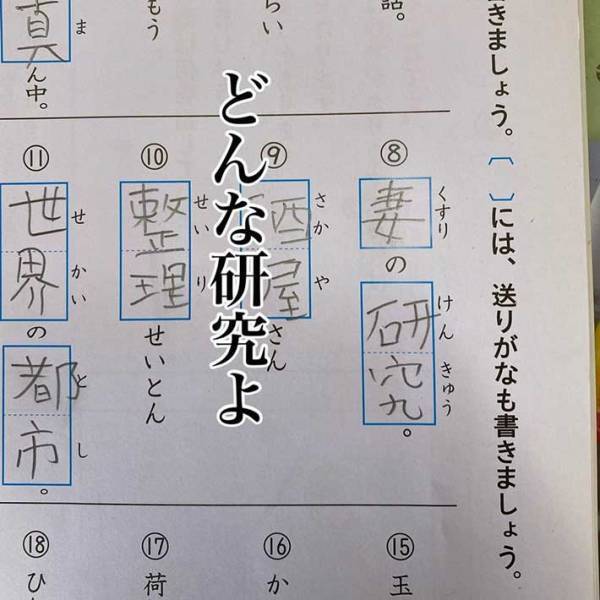 きましょう。〔 〕には、送りがなも書きましょう。
話。
らい
もう
真ん中。
ま
どんな研究よ
⑧ 妻の研究。
くすり けんきゅう
⑨ 酒屋さん
さかや
⑩ 整理せいとん
せいり
⑪ 世界の都市。
せかい とし
⑮ 玉
⑯ か
⑰ 荷
⑱ ひ